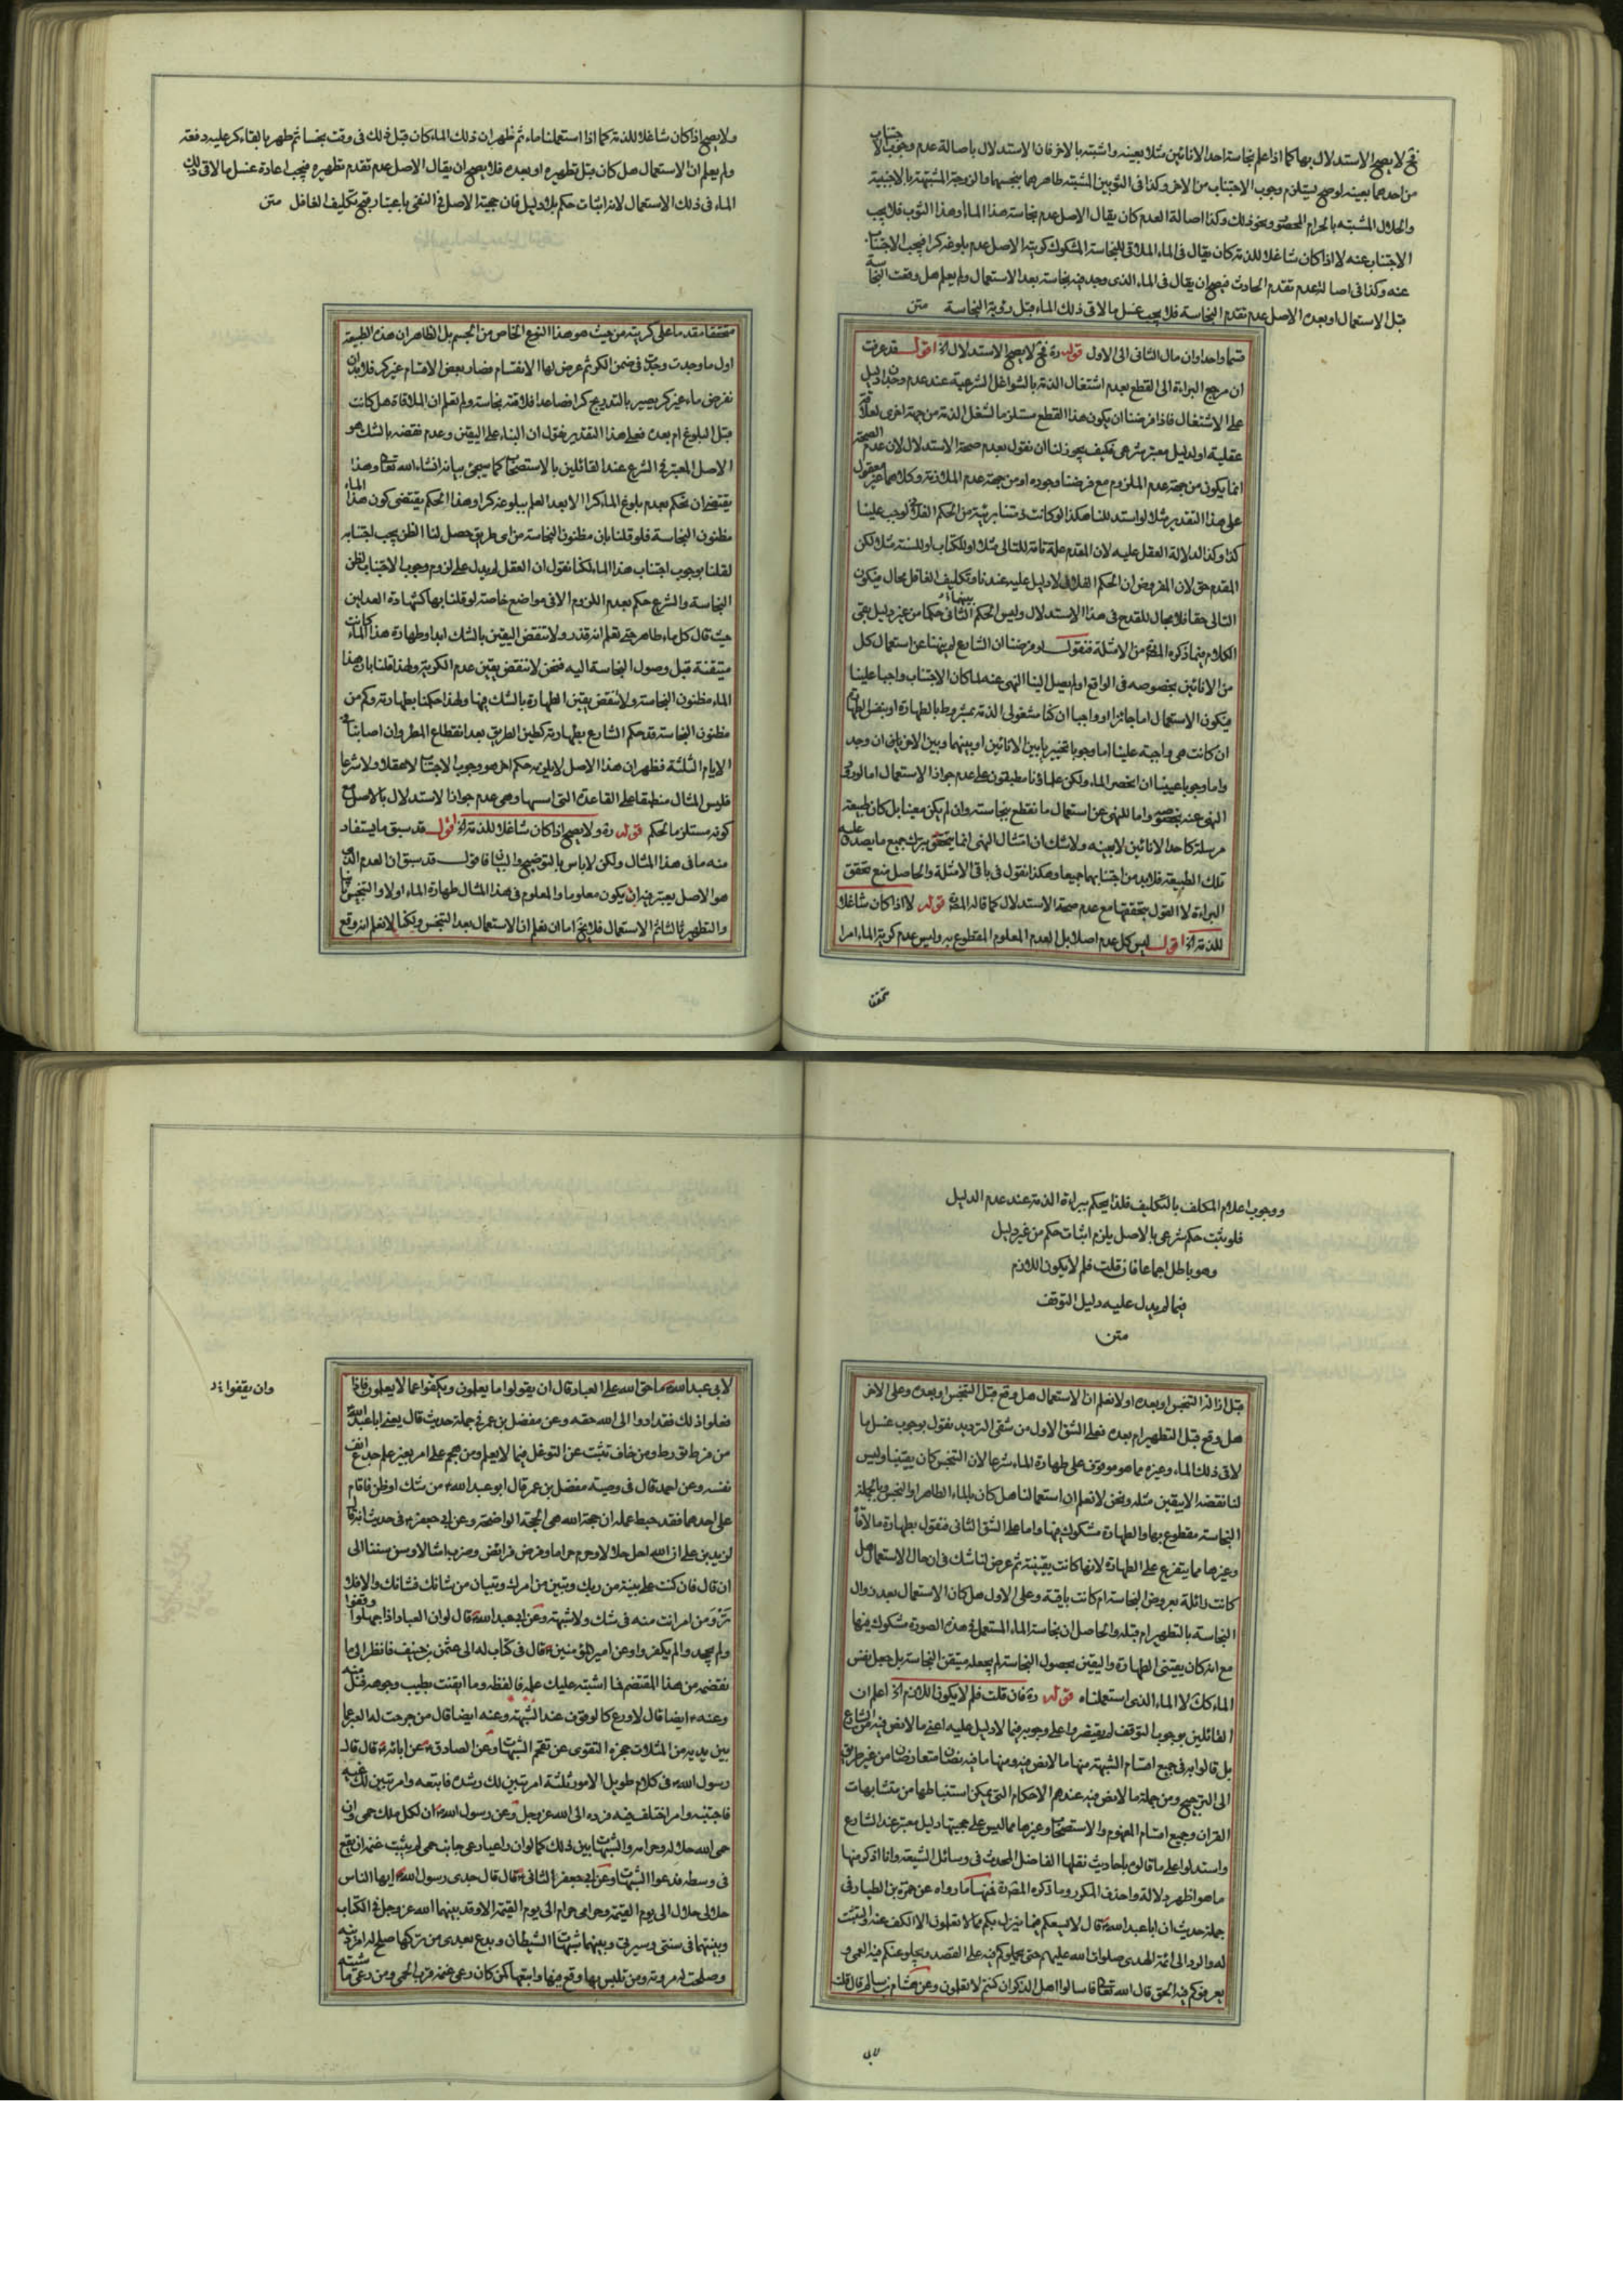 فح لا يصح الاستدلال بها كما اذا علم نجاسة احد الانائين مثلا بعينه واشتبه بالاخر فان الاستدلال باصالة عدم وجوب الاجتناب
من احدهما بعينه لو صح ليستلزم وجوب الاجتناب من الاخر وكذا فى الثوبين المشتبه طاهرهما بنجسهما والزوجة المشتبهة بالاجنبية
والحلال المشتبه بالحرام المحصور ونحو ذلك وكذا اصالة العدم كان يقال الاصل عدم نجاسة هذا الماء او هذا الثوب فلا يجب
الاجتناب عنه لا اذا كان شاغلا للذمة كان يقال فى الماء الملاقى للنجاسة المشكوك كريته الاصل عدم بلوغه كرا فيجب الاجتناب
عنه وكذا فى اصالة عدم تقدم الحادث فيصح ان يقال فى الماء الذى وجد فيه نجاسة بعد الاستعمال ولم يعلم هل وقعت النجاسة
قبل الاستعمال او بعده الاصل عدم تقدم النجاسة فلا يجب غسل ما لاقى ذلك الماء قبل رؤية النجاسة متن
قسما واحدا وان مال الثانى الى الاول قوله ره فح لا يصح الاستدلال اه اقول قد عرفت
ان مرجع البراءة الى القطع بعدم اشتغال الذمة بالشواغل الشرعية عند عدم وجدان دليل
على الاشتغال فاذا فرضنا ان يكون هذا القطع مستلزما لشغل الذمة من جهة اخرى لعلاقة
عقلية او لدليل معتبر شرعى فكيف يجوز لنا ان نقول بعدم صحة الاستدلال لان عدم الصحة
انما يكون من جهة عدم الملزوم مع فرضنا وجوده او من جهة عدم الملازمة وكلاهما غير معقول
على هذا التقدير مثلا لو استدللنا هكذا لو كانت ذمتنا بريئة من الحكم الفلانى لوجب علينا
كذا وكذا لدلالة العقل عليه لان المقدم علة تامة للتالى مثلا او للكتاب او للسنة مثلا لكن
المقدم حق لان المفروض ان الحكم الفلانى لا دليل عليه عندنا وتكليف الغافل محال فيكون
التالى حقا فلا مجال للقدح فى هذا الاستدلال وليس الحكم الثانى حكما من غير دليل بقى
الكلام فيما ذكره المص من الامثلة فنقول لو فرضنا ان الشارع لم ينهنا عن استعمال كل
من الانائين بخصوصه فى الواقع او لم يصل الينا النهى عنه لما كان الاجتناب واجبا علينا
فيكون الاستعمال اما جائزا او واجبا ان كنا مشغولى الذمة بمشروط بالطهارة او بنفس الطهارة
ان كانت هى واجبة علينا اما وجوبا تخييريا بين الانائين او بينهما وبين الاخر باق ان وجد
واما وجوبا عينيا ان انحصر الماء ولكن علماؤنا مطبقون على عدم جواز الاستعمال اما لورود
النهى عنه بخصوصه واما للنهى عن استعمال ما نقطع بنجاسته وان لم يكن معينا بل كان طبيعة
مرسلة كاحد الانائين لا بعينه ولا شك ان امتثال النهى انما يتحقق بترك جميع ما يصدق عليه
تلك الطبيعة فلا بد من اجتنابهما جميعا وهكذا نقول فى باقى الامثلة والحاصل منع تحقق
البراءة لا القول بتحققها مع عدم صحة الاستدلال كما قاله المص قوله لا اذا كان شاغلا
للذمة اه اقول ليس كل عدم اصلا بل العدم المعلوم المقطوع به وليس عدم كرية الماء امرا
متحققا
ولا يصح اذا كان شاغلا للذمة كما اذا استعملنا ماء ثم ظهر ان ذلك الماء كان قبل ذلك فى وقت نجسا ثم طهر بالقاء كر عليه دفعة
ولم يعلم ان الاستعمال هل كان قبل تطهيره او بعده فلا يصح ان يقال الاصل عدم تقدم تطهيره فيجب اعادة غسل ما لاقى ذلك
الماء فى ذلك الاستعمال لانه اثبات حكم بلا دليل فان حجية الاصل فى النفى باعتبار قبح تكليف الغافل متن
متحققا مقدما على كريته من حيث هو هذا النوع الخاص من الجسم بل الظاهر ان هذه الطبيعة
اول ما وجدت وجدت فى ضمن الكر ثم عرض لها الانقسام فصار بعض الاقسام غير كر فلا بد ان
نفرض ماء غير كر يصير بالتدريج كرا فصاعدا فلاقته نجاسة ولم نعلم ان الملاقاة هل كانت
قبل البلوغ ام بعده فعلى هذا التقدير نقول ان البناء على اليقين وعدم نقضه بالشك هو
الاصل المعتبر فى الشرع عند القائلين بالاستصحاب كما سيجئ بيانه انشاء الله تعالى وهذا
يقتضى ان نحكم بعدم بلوغ الماء كرا الا بعد العلم ببلوغه كرا وهذا الحكم يقتضى كون هذا الماء
مظنون النجاسة فلو قلنا بان مظنون النجاسة من اى طريق حصل لنا الظن يجب اجتنابه
لقلنا بوجوب اجتناب هذا الماء لكنا نقول ان العقل لم يدل على لزوم وجوب الاجتناب لظن
النجاسة والشرع حكم بعدم اللزوم الا فى مواضع خاصة لو قلنا بها كشهادة العدلين
حيث قال كل ماء طاهر حتى تعلم انه قذر ولا تنقض اليقين بالشك ابدا وطهارة هذا الماء كانت
متيقنة قبل وصول النجاسة اليه فنحن لا ننقض يقين عدم الكرية ولهذا قلنا بان هذا
الماء مظنون النجاسة ولا ننقض يقين الطهارة بالشك فيها ولهذا حكمنا بطهارته وكم من
مظنون النجاسة قد حكم الشارع بطهارته كطين الطريق بعد انقطاع المطر وان اصابنا فى
الايام الثلثة فظهر ان هذا الاصل لا يلزمه حكم اخر هو وجوب الاجتناب لا عقلا ولا شرعا
فليس المثال منطبقا على القاعدة التى اسسها وهى عدم جواز الاستدلال بالاصل مع
كونه مستلزما لحكم قوله ره ولا يصح اذا كان شاغلا للذمة اه اقول قد سبق ما يستفاد
منه ما فى هذا المثال ولكن لا باس بالتوضيح والبيان فاقول قد سبق ان العدم الذى
هو الاصل يعتبر فيه ان يكون معلوما والمعلوم فى هذا المثال طهارة الماء اولا والتنجس ثانيا
والتطهير ثالثا ثم الاستعمال فلا يخ اما ان نعلم ان الاستعمال بعد التنجس ولكنا لا نعلم انه وقع
ووجوب اعلام المكلف بالتكليف فلذا يحكم ببراءة الذمة عند عدم الدليل
فلو يثبت حكم شرعى بالاصل يلزم اثبات حكم من غير دليل
وهو باطل اجماعا فان قلت فلم لا يكون اللازم
فيما لم يدل عليه دليل التوقف
متن
قبل ازالة التنجس او بعده او لا نعلم ان الاستعمال هل وقع قبل التنجس او بعده وعلى الاخر
هل وقع قبل التطهير ام بعده فعلى الشق الاول من شقى الترديد نقول بوجوب غسل ما
لاقى ذلك الماء وغيره مما هو موقوف على طهارة الماء شرعا لان التنجس كان يقينيا وليس
لنا نقضه الا بيقين مثله ونحن لا نعلم ان استعمالنا هل كان بالماء الطاهر او النجس وبالجملة
النجاسة مقطوع بها والطهارة مشكوك فيها واما على الشق الثانى فنقول بطهارة ما لاقاه
وغيرها مما يتفرع على الطهارة لانها كانت يقينية ثم عرض لنا شك فى ان حال الاستعمال هل
كانت زائلة بعروض النجاسة ام كانت باقية وعلى الاول هل كان الاستعمال بعد زوال
النجاسة بالتطهير ام قبله والحاصل ان نجاسة الماء المستعمل فى هذه الصورة مشكوك فيها
مع انه كان يقينى الطهارة واليقين بحصول النجاسة لم يجعله متيقن النجاسة بل جعل نفس
الماء كك لا الماء الذى استعملناه قوله ره فان قلت فلم لا يكون اللازم اه اعلم ان
القائلين بوجوب التوقف لم يقتصروا على وجوبه فيما لا دليل عليه اعنى ما لا نص فيه من الشارع
بل قالوا به فى جميع اقسام الشبهة منها ما لا نص فيه ومنها ما فيه نصان متعارضان من غير طريق
الى الترجيح ومن جملة ما لا نص فيه عندهم الاحكام التى يمكن استنباطها من متشابهات
القران وجميع اقسام المفهوم والاستصحاب وغيرها مما ليس على حجيتها دليل معتبر عند الشارع
واستدلوا على ما قالوه باحاديث نقلها الفاضل المحدث فى وسائل الشيعة وانا اذكر منها
ما هو اظهر دلالة واحذف المكرر وما ذكره المص ره فمنها ما رواه عن حمزة بن الطيار فى
جملة حديث ان ابا عبد الله ع قال لا يسعكم فيما ينزل بكم مما لا تعلمون الا الكف عنه والتثبت
له والرد الى ائمة الهدى صلوات الله عليهم حتى يحملوكم فيه على القصد ويجلو عنكم فيه العمى و
يعرفوكم فيه الحق قال الله تعالى فاسالوا اهل الذكر ان كنتم لا تعلمون وعن هشام بن سالم قال قلت
لابى
لابى عبد الله ع ما حق الله على العباد قال ان يقولوا ما يعلمون ويكفوا عما لا يعلمون فاذا
فعلوا ذلك فقد ادوا الى الله حقه وعن مفضل بن عمر فى جملة حديث قال يعنى ابا عبد الله
من فرط تورط ومن خاف تثبت عن التوغل فيما لا يعلم ومن هجم على امر بغير علم جدع انف
نفسه وعن احمد قال فى وصية مفضل بن عمر قال ابو عبد الله ع من شك او ظن فاقام
على احدهما فقد حبط عمله ان حجة الله هى الحجة الواضحة وعن ابى جعفر ع فى حديث انه قال
لزيد بن على ان الله احل حلالا وحرم حراما وفرض فرائض وضرب امثالا وسن سننا الى
ان قال فان كنت على بينة من ربك ويقين من امرك وتبيان من شانك فشانك والا فلا
ترومن امرا انت منه فى شك ولا شبهة وعن ابى عبد الله ع قال لو ان العباد اذا جهلوا وقفوا
ولم يجحدوا لم يكفروا وعن امير المؤمنين ع قال فى كتاب له الى عثمن بن حنيف فانظر الى ما
تقضمه من هذا المقضم فما اشتبه عليك علمه فالفظه وما ايقنت بطيب وجوهه فنل منه
وعنه ع ايضا قال لا ورع كالوقوف عند الشبهة وعنه ايضا قال من صرحت له العبر عما
بين يديه من المثلات حجزه التقوى عن تقحم الشبهات وعن الصادق ع عن ابائه ع قال قال
رسول الله ص فى كلام طويل الامور ثلثة امر تبين لك رشده فاتبعه وامر تبين لك غيه
فاجتنبه وامر اختلف فيه فرده الى الله عز وجل وعن رسول الله ص ان لكل ملك حمى وان
حمى الله حلاله وحرامه والشبهات بين ذلك كما لو ان راعيا رعى جانب حمى لم يثبت غنمه ان يقع
فى وسطه فدعوا الشبهات وعن ابى جعفر الثانى ع قال قال جدى رسول الله ص ايها الناس
حلالى حلال الى يوم القيمة وحرامى حرام الى يوم القيمة الا وقد بينهما الله عز وجل فى الكتاب
وبينتهما فى سنتى وسيرتى وبينهما شبهات من الشيطان وبدع بعدى من تركها صلح له امر دينه
وصلحت له مروته ومن تلبس بها وقع فيها واتبعها كمن كان رعى غنمه قرب الحمى ومن رعى ماشيته
وان يقفوا